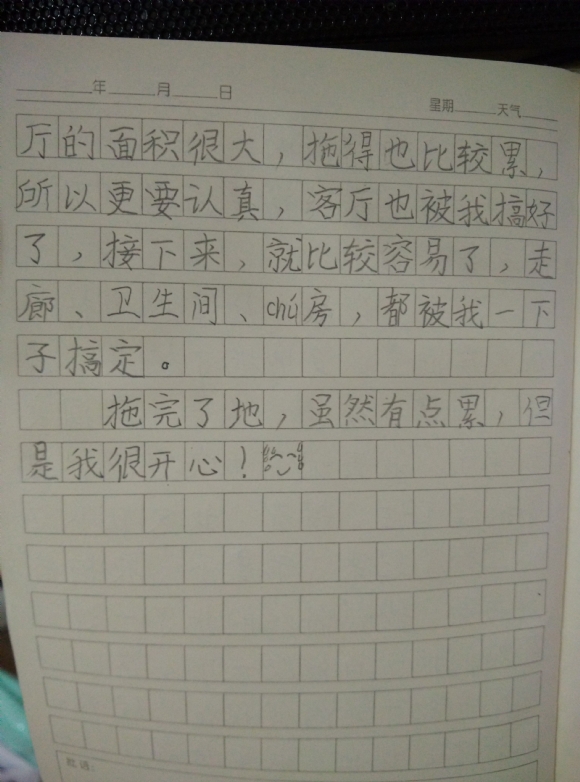 年 月 日
星期 天气
厅的面积很大，拖得也比较累，
所以更要认真，客厅也被我搞好
了，接下来，就比较容易了，走
廊、卫生间、chú房，都被我一下
子搞定。
拖完了地，虽然有点累，但
是我很开心！
批语：